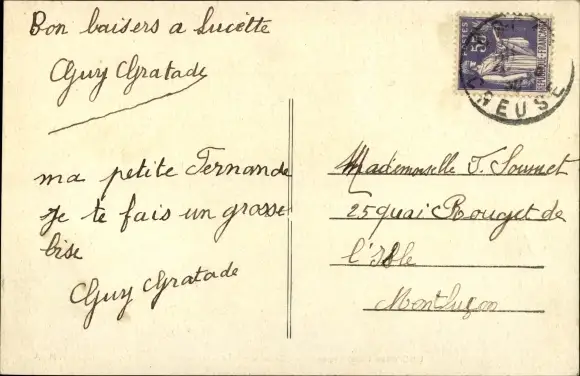 Bon baisers a Lucette
Guy Gratade
ma petite Fernande
Je te fais un grosse
bise
Guy Gratade
POSTES
55c
REPUBLIQUE FRANÇAISE
CREUSE
Mademoiselle F.
25 quai Rouget de
l'Isle
Montluçon